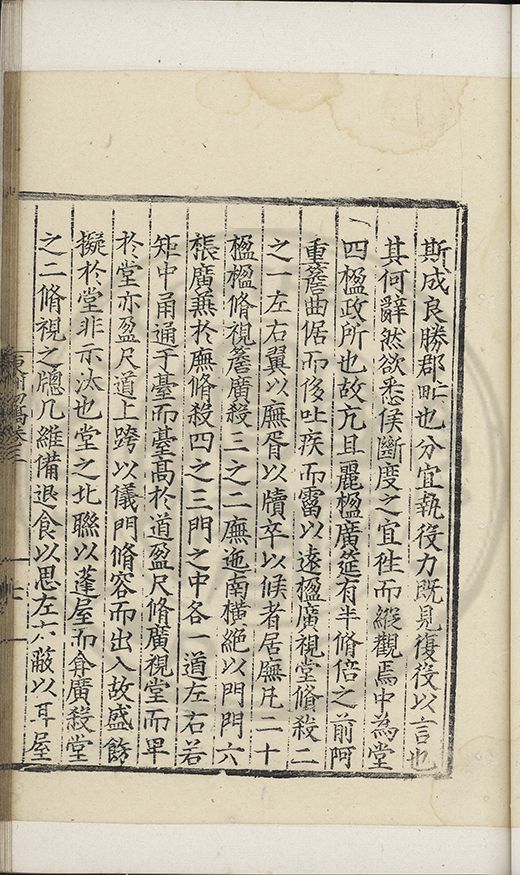 斯成良勝郡甿也分宜執役力既見復役以言也
其何辭然欲悉侯斷度之宜徃而縱觀焉中為堂
四楹政所也故亢且麗楹廣筵有半脩倍之前阿
重簷曲倨而侈吐疾而霤以遠楹廣視堂脩殺二
之一左右翼以廡胥以牘卒以候者居廡凡二十
楹楹脩視簷廣殺三之二廡迤南橫絕以門門六
棖廣無於廡脩殺四之三門之中各一道左右若
矩中甬通于臺而臺高於道盈尺脩廣視堂而畢
於堂亦盈尺道上跨以儀門脩容而出入故盛餙
擬於堂非示汰也堂之北聯以蓬屋而弇廣殺堂
之二脩視之牕几維備退食以思左六蔽以耳屋